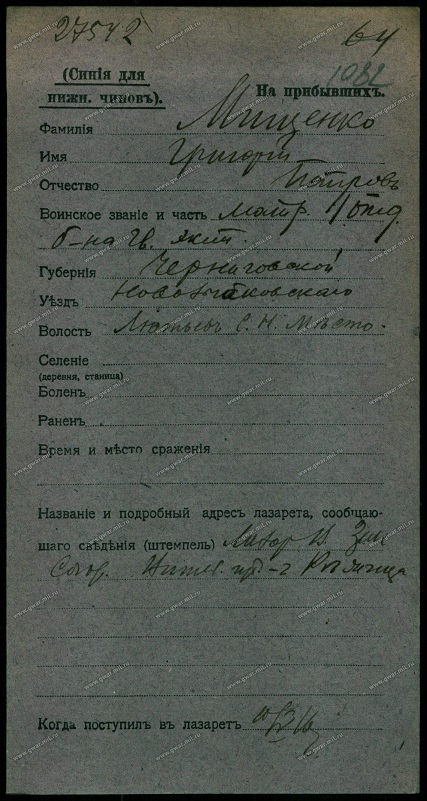 27542 64
(Синія для
нижн. чиновъ).
1082
На прибывшихъ.
Фамилія Мищенко
Имя Григорій
Отчество Петровъ
Воинское званіе и часть матр. 1 отд.
б-на Гв. экип.
Губернія Черниговской
Уѣздъ Новозыбковскаго
Волость С. Н. Мѣсто.
Селеніе
(деревня, станица)
Боленъ
Раненъ
Время и мѣсто сраженія
Названіе и подробный адресъ лазарета, сообщаю-
щаго свѣдѣнія (штемпель) Лазар
Когда поступилъ въ лазаретъ
www.gwar.mil.ru